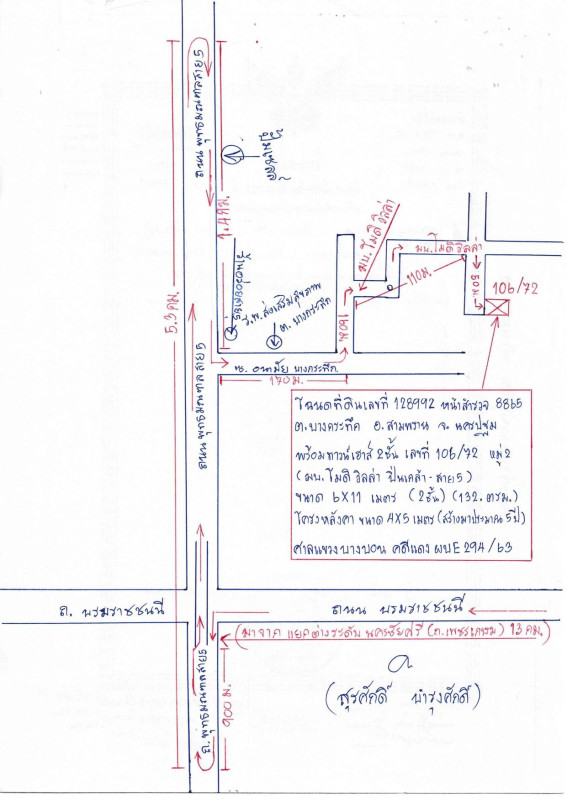 ถนน พุทธมณฑลสาย 5
1.4 กม.
5.3 กม.
มบ. โมดิ วิลล่า
มบ. โมดิ วิลล่า
110 ม.
50 ม.
106/72
ร.พ. ส่งเสริมสุขภาพ
ต. บางกระทึก
160 ม.
ซ. อนามัย บางกระทึก
170 ม.
ถนน พุทธมณฑล สาย 5
โฉนดที่ดินเลขที่ 128992 หน้าสำรวจ 8865
ต.บางกระทึก อ.สามพราน จ. นครปฐม
พร้อมทาวน์เฮาส์ 2 ชั้น เลขที่ 106/72 หมู่ 2
(มบ. โมดิ วิลล่า ปิ่นเกล้า - สาย 5)
ขนาด 6X11 เมตร (2 ชั้น) (132. ตรม.)
โครงหลังคา ขนาด 4X5 เมตร (สร้างมาประมาณ 5 ปี)
ศาลแขวงบางบอน คดีแดง ผบE 294/63
ถ. บรมราชชนนี
ถนน บรมราชชนนี
(มาจาก แยกต่างระดับ นครชัยศรี (ถ.เพชรเกษม) 13 กม.)
ถ. พุทธมณฑลสาย 5
900 ม.
(สุรศักดิ์ บำรุงศักดิ์)